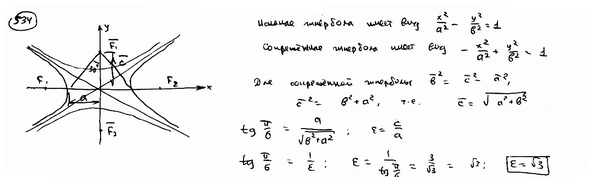 534
y
F̄₁
c̄
30°
F₁
a
F₂
x
F̄₂
Искомая гипербола имеет вид x²/a² - y²/b² = 1
Сопряжённая гипербола имеет вид - x²/a² + y²/b² = 1
Для сопряжённой гиперболы b̄² = c̄² - a̅²,
c̄² = b² + a², т.е. c̄ = √(a² + b²)
tg π/6 = a/√(b² + a²); ε = c/a
tg π/6 = 1/ε; ε = 1/tg π/6 = 3/√3 = √3; ε = √3